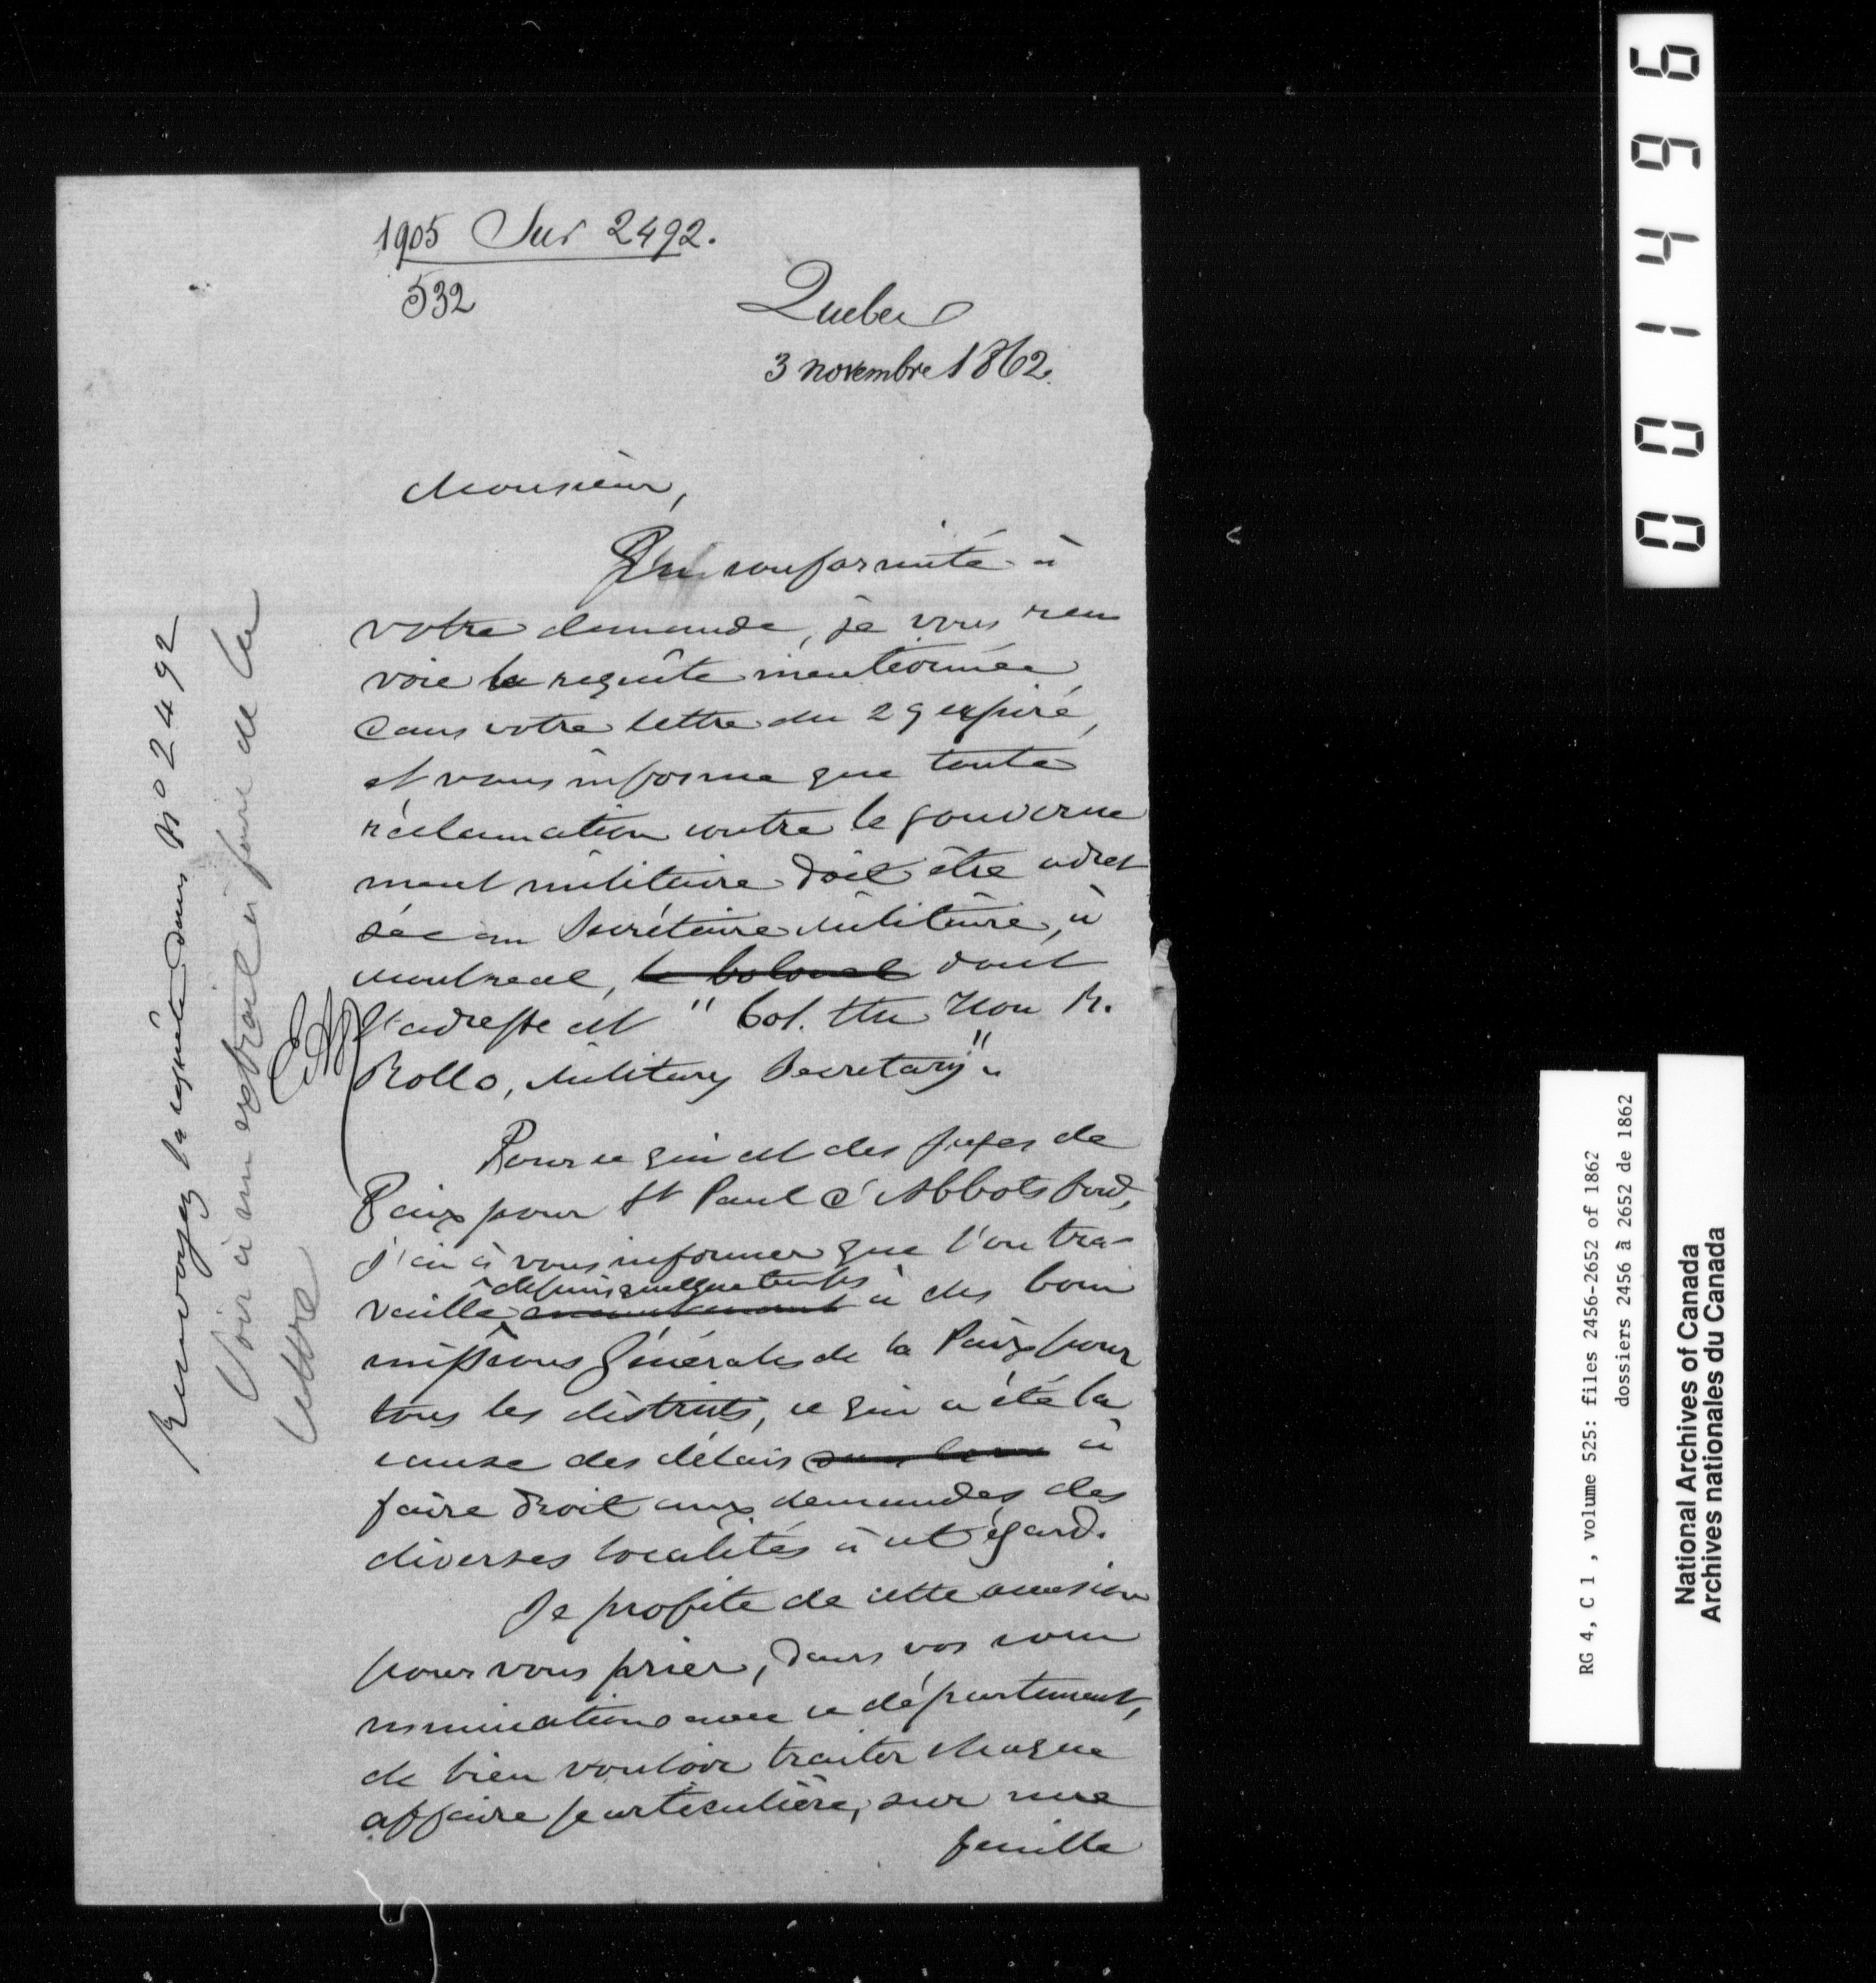 1905 Sur 2492.
532
Quebec
3 novembre 1862.
Monsieur,
En conformité à
votre demande, je vous ren
voie la requête mentionnée
dans votre lettre du 29 expiré,
et vous informe que toute
réclamation contre le gouverne
ment militaire doit être adres
sée au Secrétaire Militaire, à
Montreal, le Colonel dont
l'adresse est "Col. the Hon R.
Rollo, Military Secretary".
Pour ce qui est des Juges de
Paix pour St Paul d'Abbotsford,
j'ai à vous informer que l'on tra-
depuis quelque temps
vaille à des Com
missions Générales de la Paix pour
tous les districts, ce qui a été la
cause des délais à
faire droit aux demandes des
diverses localités à cet égard.
Je profite de cette occasion
pour vous prier, dans vos com
munications avec ce département,
de bien vouloir traiter chaque
affaire particulière, sur une
feuille
Renvoyez la requête dans No 2492
Voir à un extrait à faire de la
lettre
001496
RG 4, C 1, volume 525: files 2456-2652 of 1862
dossiers 2456 à 2652 de 1862
National Archives of Canada
Archives nationales du Canada